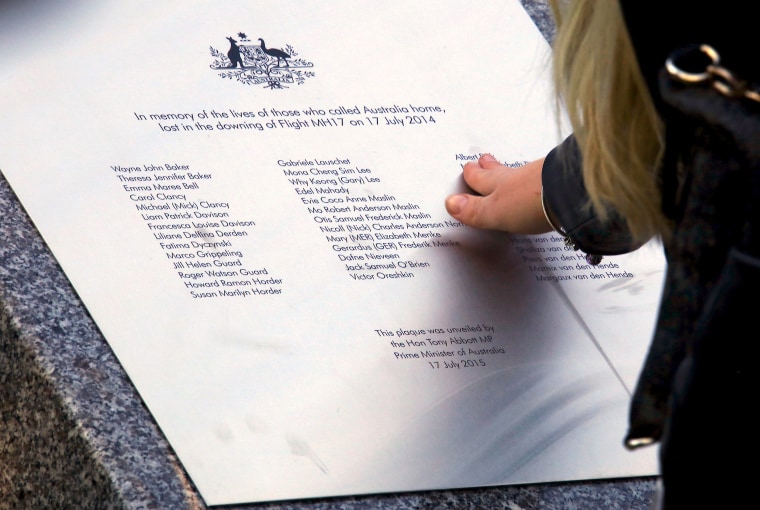 In memory of the lives of those who called Australia home,
lost in the downing of Flight MH17 on 17 July 2014
Wayne John Baker
Theresa Jennifer Baker
Emma Maree Bell
Carol Clancy
Michael (Mick) Clancy
Liam Patrick Davison
Francesca Louise Davison
Liliane Dellina Derden
Fatima Dyczynski
Marco Grippeling
Jill Helen Guard
Roger Watson Guard
Howard Ramon Horder
Susan Marilyn Horder
Gabriele Lauschet
Mona Cheng Sim Lee
Why Keong (Gary) Lee
Edel Mahady
Evie Coco Anne Maslin
Mo Robert Anderson Maslin
Otis Samuel Frederick Maslin
Nicoll (Nick) Charles Anderson
Mary (MER) Elizabeth Menke
Gerardus (GER) Frederik Menke
Dafne Nieveen
Jack Samuel O'Brien
Victor Oreshkin
Albert
van den
van den
van den
Marnix van den Hende
Margaux van den Hende
This plaque was unveiled by
the Hon Tony Abbott MP
Prime Minister of Australia
17 July 2015